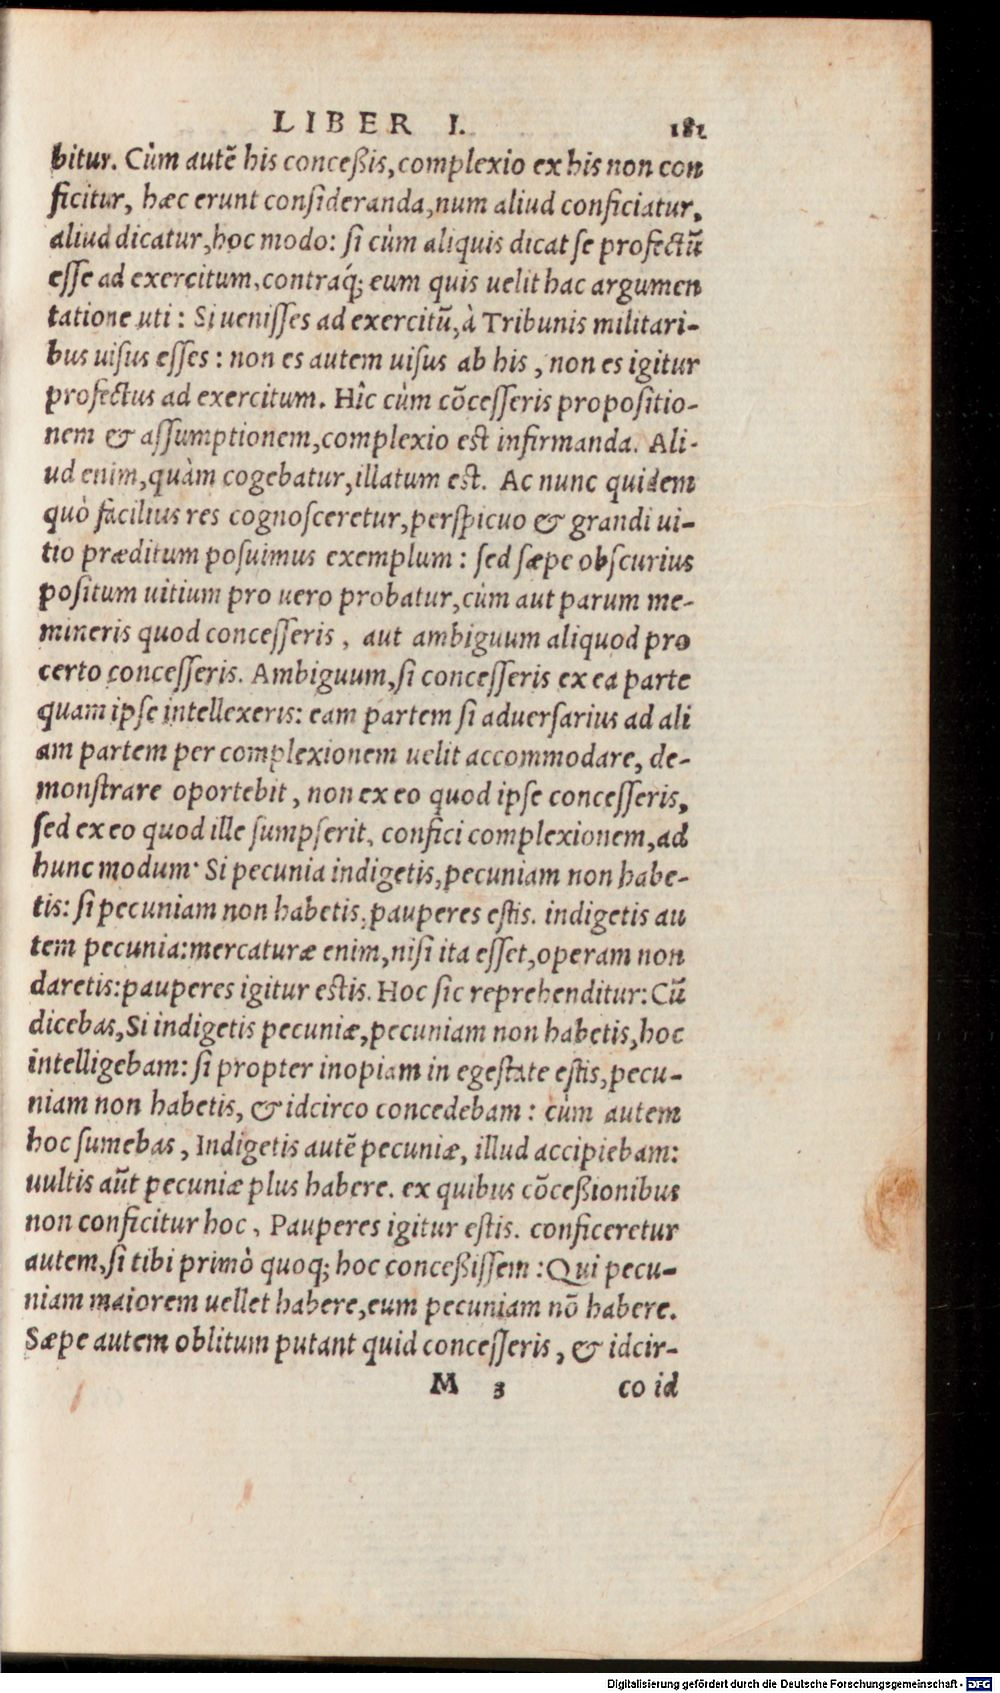 LIBER I. 181
bitur. Cùm autē his conceßis, complexio ex his non con
ficitur, hæc erunt consideranda, num aliud conficiatur,
aliud dicatur, hoc modo: si cùm aliquis dicat se profectū
esse ad exercitum, contraq́; eum quis uelit hac argumen
tatione uti: Si uenisses ad exercitū, à Tribunis militari-
bus uisus esses: non es autem uisus ab his, non es igitur
profectus ad exercitum. Hîc cùm cōcesseris propositio-
nem & assumptionem, complexio est infirmanda. Ali-
ud enim, quàm cogebatur, illatum est. Ac nunc quidem
quò facilius res cognosceretur, perspicuo & grandi ui-
tio præditum posuimus exemplum: sed sæpe obscurius
positum uitium pro uero probatur, cùm aut parum me-
mineris quod concesseris, aut ambiguum aliquod pro
certo concesseris. Ambiguum, si concesseris ex ea parte
quam ipse intellexeris: eam partem si aduersarius ad ali
am partem per complexionem uelit accommodare, de-
monstrare oportebit, non ex eo quod ipse concesseris,
sed ex eo quod ille sumpserit, confici complexionem, ad
hunc modum: Si pecunia indigetis, pecuniam non habe-
tis: si pecuniam non habetis, pauperes estis. indigetis au
tem pecunia: mercaturæ enim, nisi ita esset, operam non
daretis: pauperes igitur estis. Hoc sic reprehenditur: Cū
dicebas, Si indigetis pecuniæ, pecuniam non habetis, hoc
intelligebam: si propter inopiam in egestate estis, pecu-
niam non habetis, & idcirco concedebam: cùm autem
hoc sumebas, Indigetis autē pecuniæ, illud accipiebam:
uultis aūt pecuniæ plus habere. ex quibus cōceßionibus
non conficitur hoc, Pauperes igitur estis. conficeretur
autem, si tibi primò quoq; hoc conceßissem: Qui pecu-
niam maiorem uellet habere, eum pecuniam nō habere.
Sæpe autem oblitum putant quid concesseris, & idcir-
M 3 co id
Digitalisierung gefördert durch die Deutsche Forschungsgemeinschaft - DFG